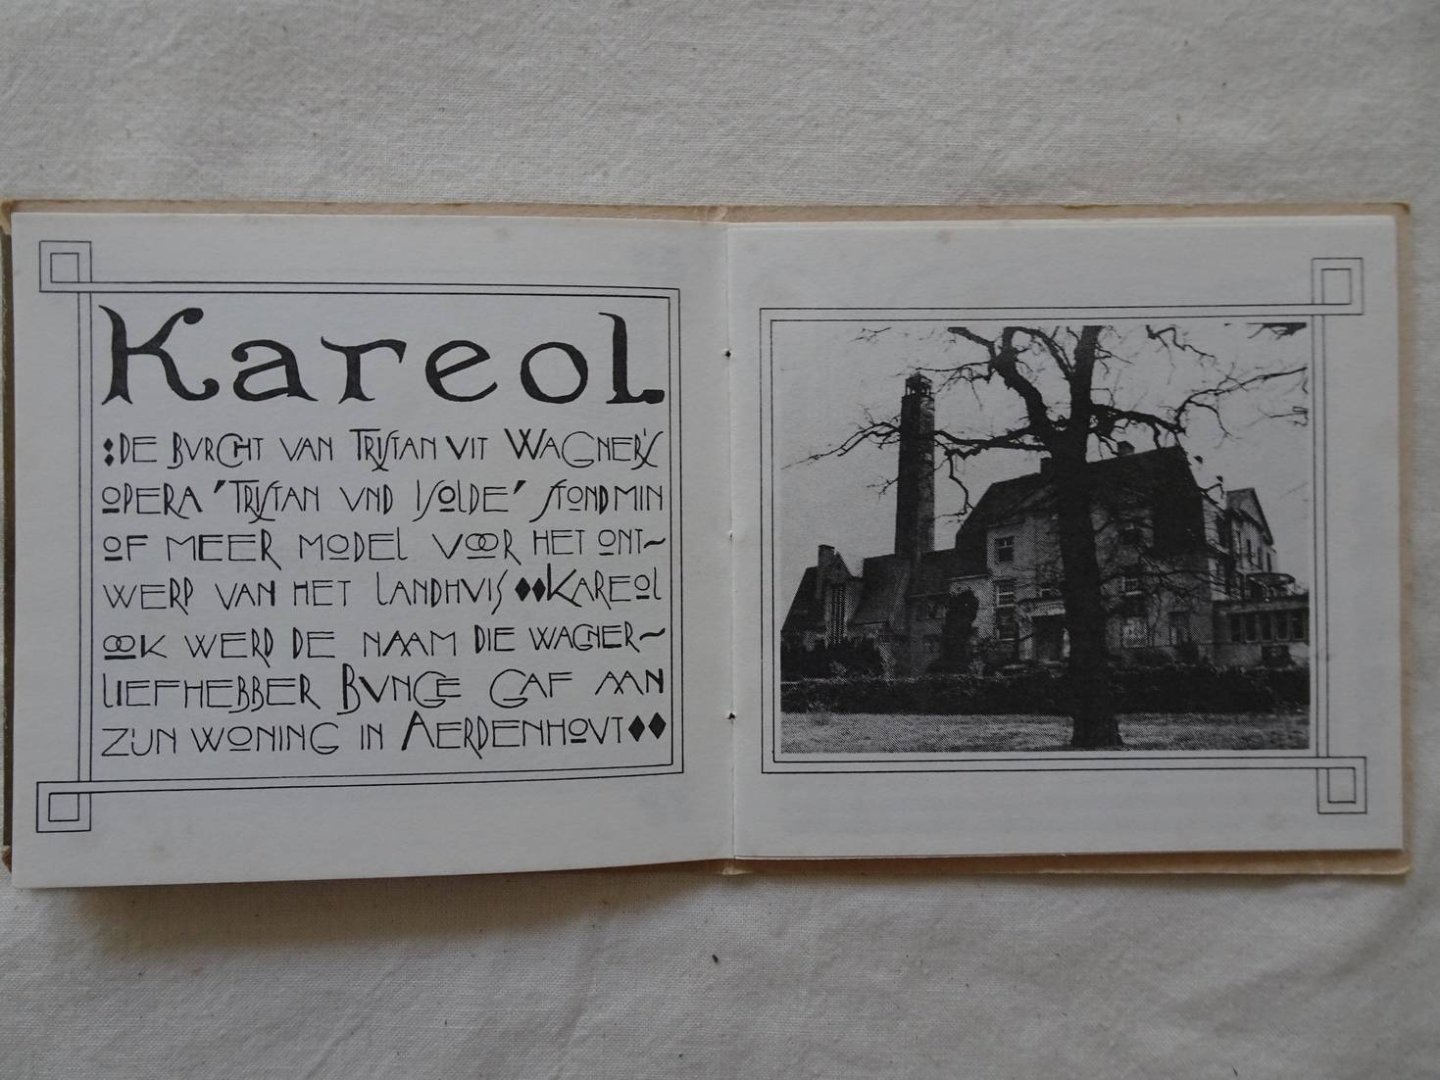 Kareol
:DE BVRCHT VAN TRISTAN VIT WAGNER'S
OPERA "TRISTAN VND ISOLDE" STOND MIN
OF MEER MODEL VOOR HET ONT~
WERP VAN HET LANDHVIS ♦♦KAREOL
OOK WERD DE NAAM DIE WAGNER~
LIEFHEBBER BVNGE GAF AAN
ZIJN WONING IN AERDENHOVT♦♦